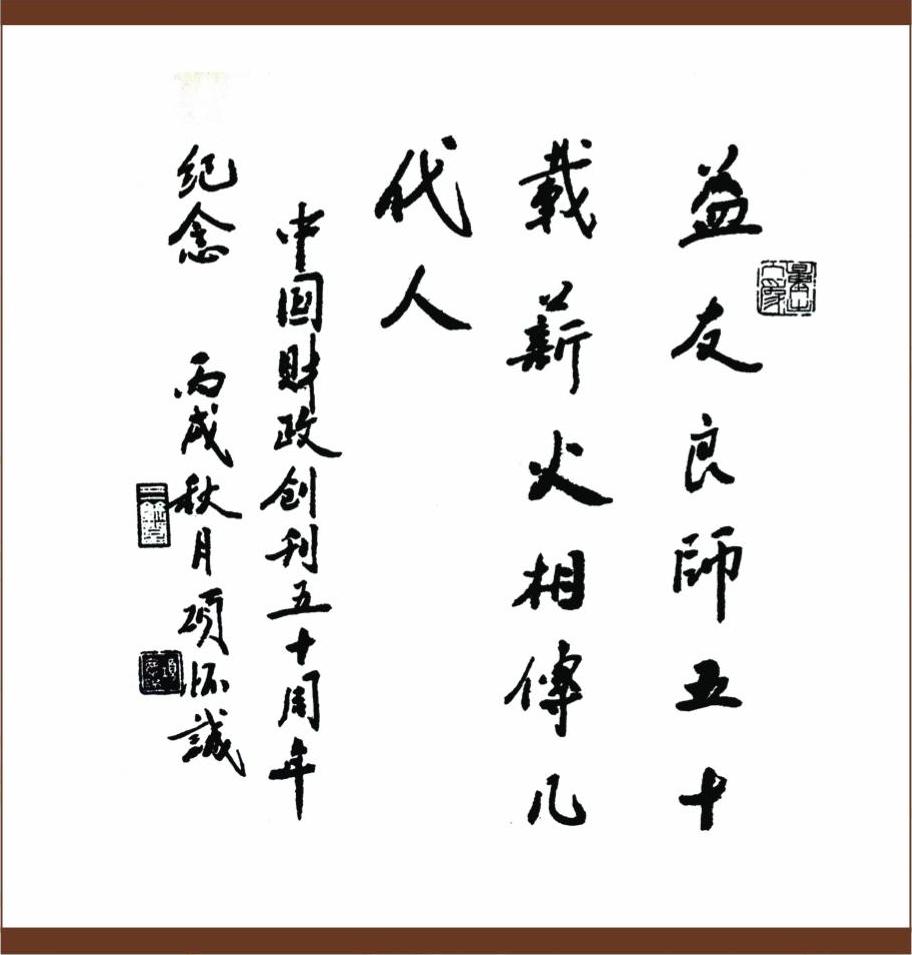 益友良師五十
載薪火相傳几
代人
中国財政创刊五十周年
紀念 丙戌秋月 項怀誠